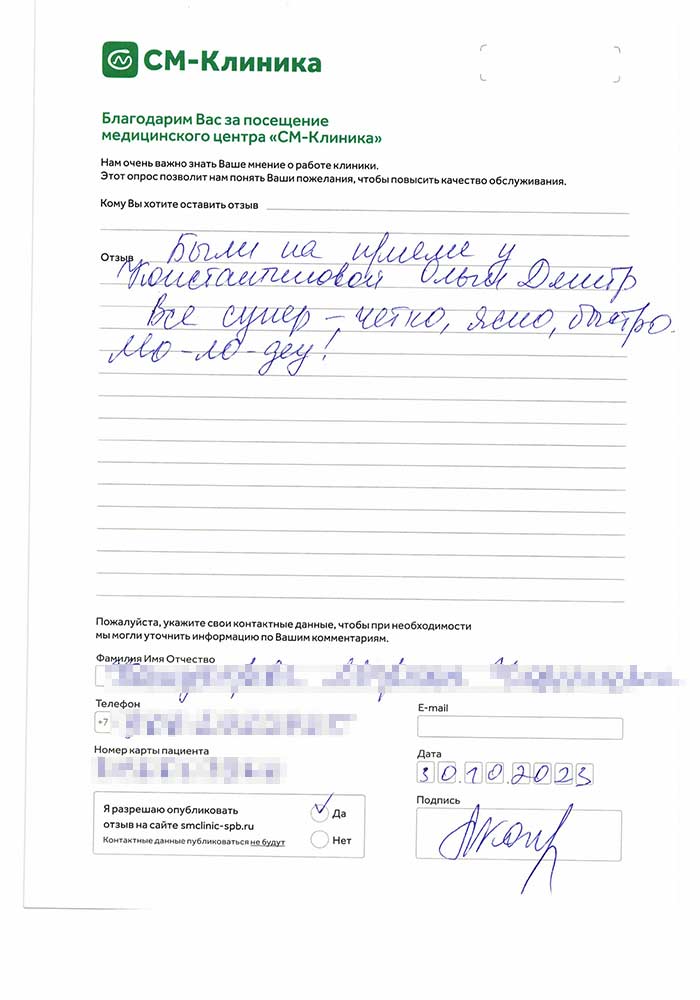 СМ-Клиника
Благодарим Вас за посещение
медицинского центра «СМ-Клиника»
Нам очень важно знать Ваше мнение о работе клиники.
Этот опрос позволит нам понять Ваши пожелания, чтобы повысить качество обслуживания.
Кому Вы хотите оставить отзыв
Отзыв Были на приеме у
Константиновой Ольги Дмитр
Все супер – четко, ясно, быстро.
Мо-ло-дец!
Пожалуйста, укажите свои контактные данные, чтобы при необходимости
мы могли уточнить информацию по Вашим комментариям.
Фамилия Имя Отчество
Телефон
+7
E-mail
Номер карты пациента
Дата
30.10.2023
Я разрешаю опубликовать
отзыв на сайте smclinic-spb.ru
Контактные данные публиковаться не будут
Да
Нет
Подпись